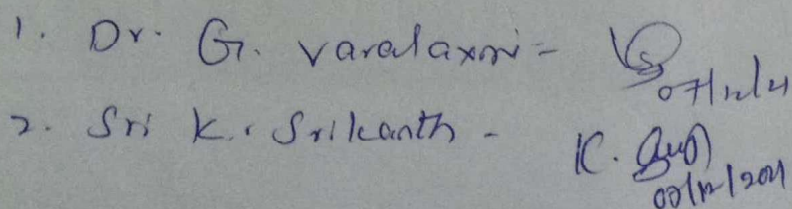 1. Dr. G. Varalaxmi - 07/12/21
2. Sri K. Srikanth - K.
07/12/2021